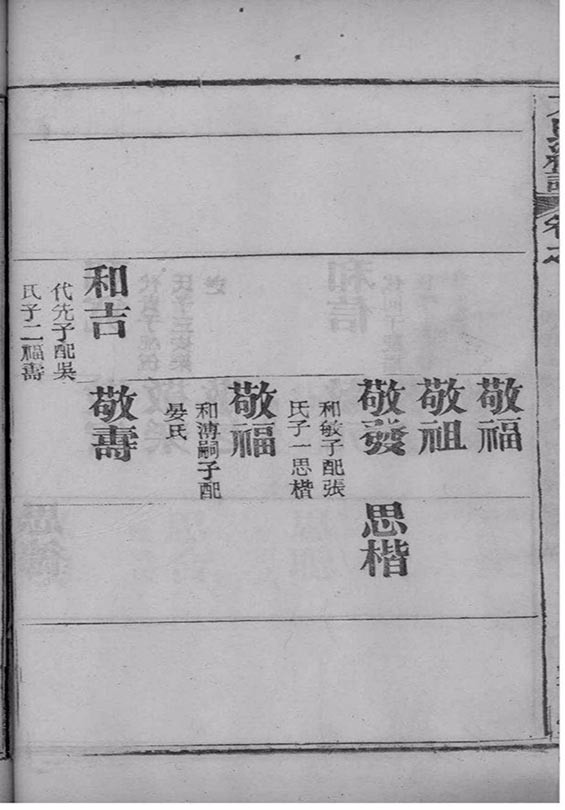 敬福
敬祖
敬發
和敏子配張
氏子一思楷
思楷
敬福
和溥嗣子配
晏氏
和吉
代先子配吴
氏子二福壽
敬壽